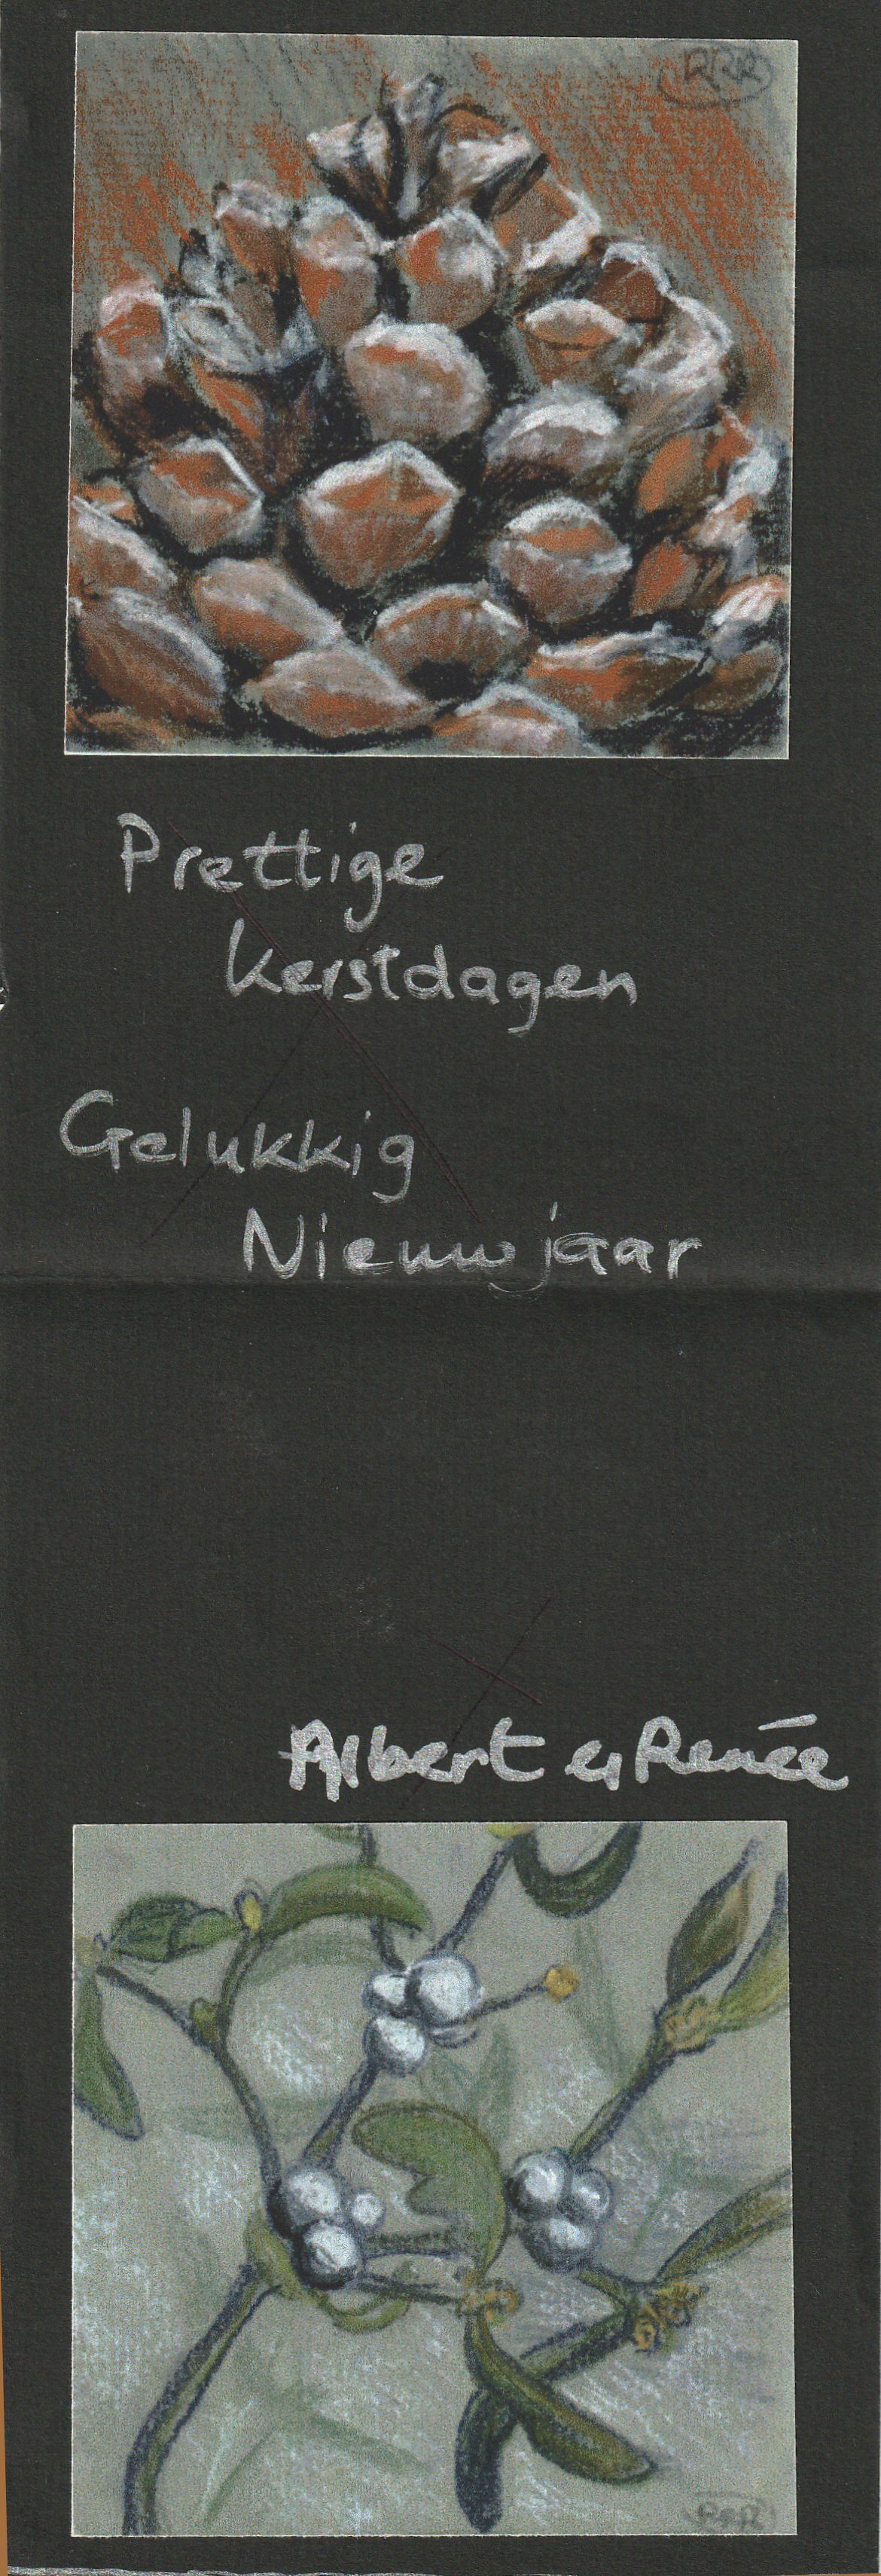 Prettige
kerstdagen
Gelukkig
Nieuwjaar
Albert en Renée